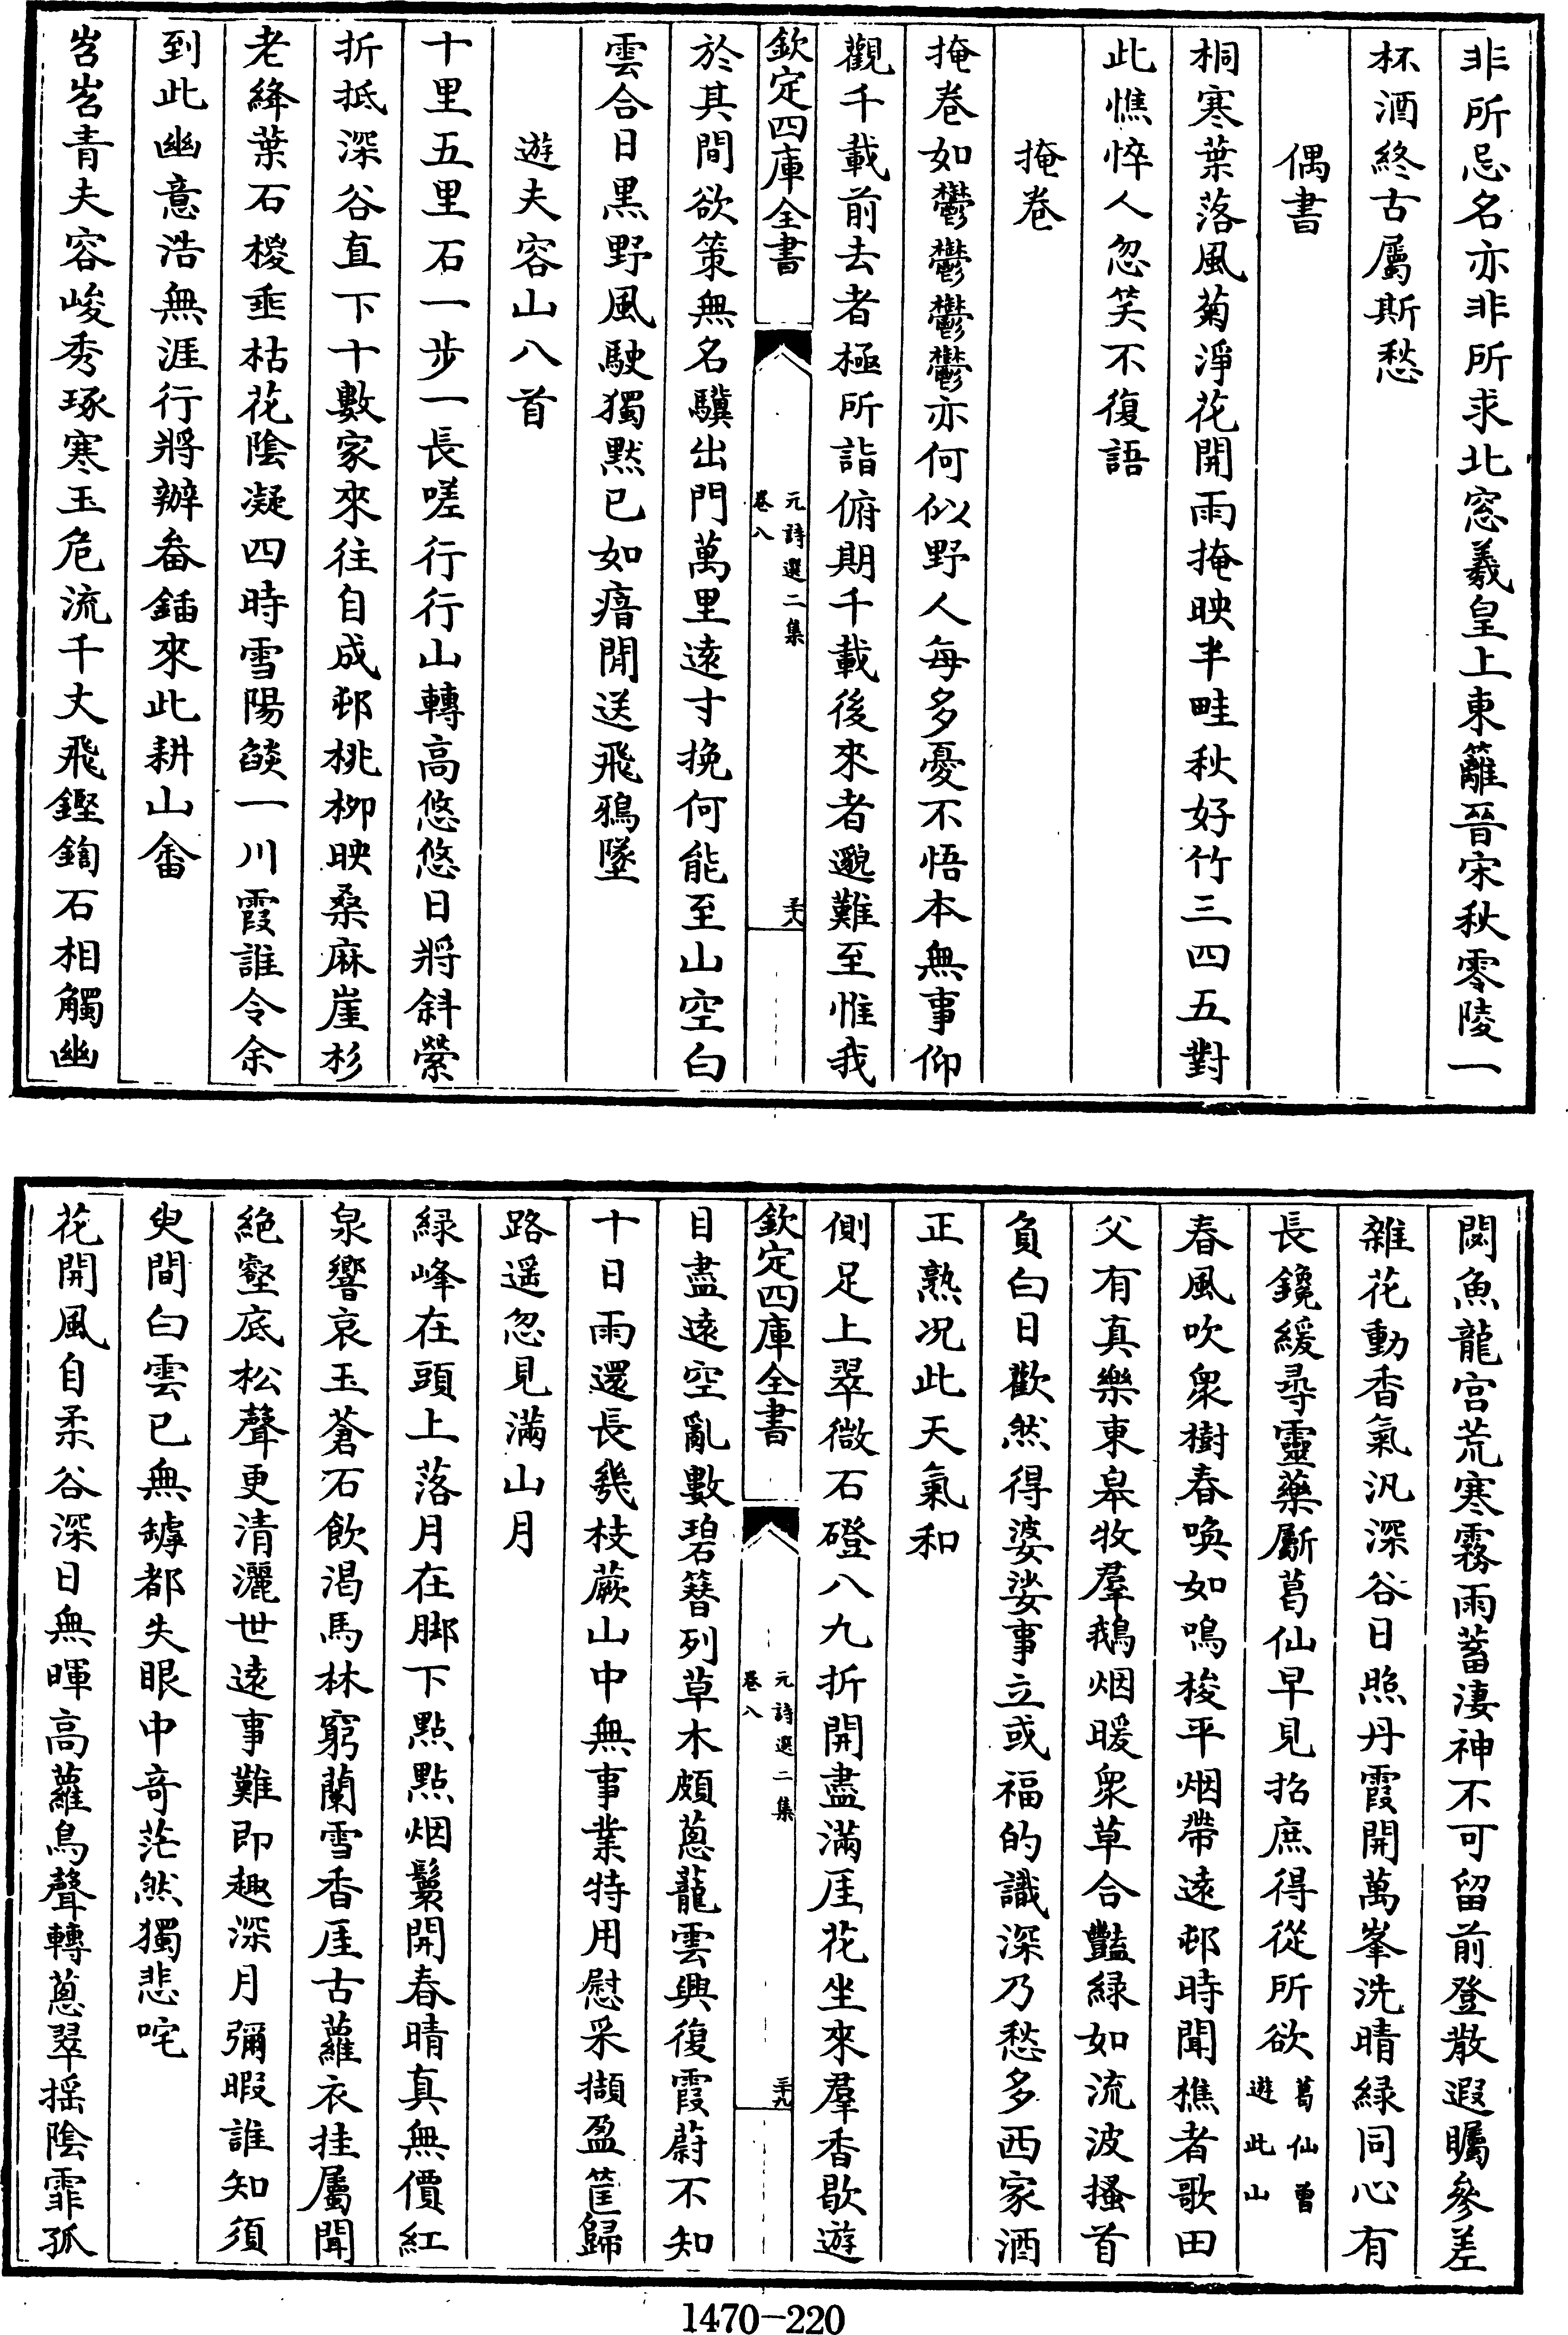 非所忌名亦非所求北窓羲皇上東籬晉宋秋零陵一
杯酒終古屬斯愁
偶書
桐寒葉落風菊淨花開雨掩映半畦秋好竹三四五對
此憔悴人忽笑不復語
掩巻
掩巻如鬱鬱鬱鬱亦何似野人每多憂不悟本無事仰
觀千載前去者極所詣俯期千載後來者邈難至惟我
欽定四庫全書
元詩選二集
巻八
三十八
於其間欲策無名驥出門萬里遠寸挽何能至山空白
雲合日黒野風駛獨黙已如瘖閒送飛鴉墜
遊夫容山八首
十里五里石一步一長嗟行行山轉高悠悠日將斜縈
折抵深谷直下十數家來往自成邨桃栁映桑麻崖杉
老絳葉石椶垂枯花陰凝四時雪陽燄一川霞誰令余
到此幽意浩無涯行將辦畚鍤來此耕山畬
岧岧青夫容峻秀琢寒玉危流千丈飛鏗鍧石相觸幽
閟魚龍宫荒寒霧雨蓄淒神不可留前登散遐矚參差
雜花動香氣汎深谷日照丹霞開萬峯洗晴緑同心有
長鑱緩尋靈藥斸葛仙早見招庶得從所欲
葛仙曽
遊此山
春風吹衆樹春喚如鳴梭平烟帶遠邨時聞樵者歌田
父有真樂東皋牧羣鵝烟暖衆草合豔緑如流波搔首
負白日歡然得婆娑事立或福的識深乃愁多西家酒
正熟况此天氣和
側足上翠微石磴八九折開盡滿厓花坐來羣香歇遊
欽定四庫全書
元詩選二集
巻八
三十九
目盡遠空亂數碧簪列草木頗蔥蘢雲興復霞蔚不知
十日雨還長幾枝蕨山中無事業特用慰采擷盈筐歸
路遥忽見滿山月
緑峰在頭上落月在脚下點點烟鬟開春晴真無價紅
泉響哀玉蒼石飲渴馬林窮蘭雪香厓古蘿衣挂屬聞
絶壑底松聲更清灑世遠事難即趣深月彌暇誰知須
臾間白雲已無罅都失眼中奇茫然獨悲咤
花開風自柔谷深日無暉高蘿鳥聲轉蔥翠揺陰霏孤
1470-220